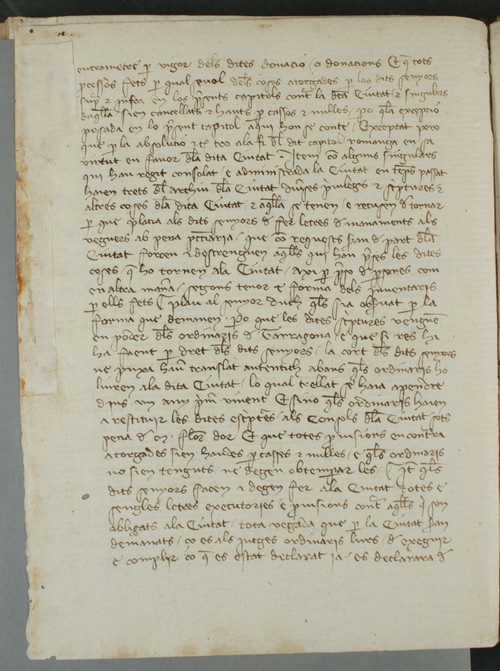 entrametre per vigor dels dites donacio o donacions E q tots
pcessos fets p qual s uol dels coses atorgades p los dits senyors
sup & infra en los psents capitols cont la dca Ciutat & singulars
daqlla sien cancellats & hauts p cassos & nulles po qlla excepcio
posada en lo psent capitol aqui hon se conte Exceptat pero
que p la absolucio &c tro ala fi dl dit capitol romanga en sa
virtut en fauor dla dita Ciutat Item com alguns singulars
qui han regit consolat e administrada la Ciutat en temps passat
hauen trets dl archiu dla Ciutat diuses priuilegis & scriptures &
altres coses dla dita Ciutat & aqlles se tenen e recusen d tornar
p que placia als dits senyors d fer letres d manaments als
veguers ab pena que requests sian d part dla
Ciutat forcen & destrenguen aqlls qui hon pses les dites
coses q ho tornen ala Ciutat o psones com
en altra mana segons tenor e forma dels inuentaris
p ells fets Plau al senyor duch qls sia obseruat p la
forma que demanen Po que les dites scptures venguen
en poder dls ordinaris d Tarragona e que si res hi
ha faent p dret dls dits senyors la cort dls dits senyors
ne puixa hauer translat autentich abans qls ordinaris ho
liuren ala dita Ciutat lo qual tcellat se haia apendre
dins un any pim vinent E si no qls ordinaris haien
a restituir les dites esciptures als Consols dla Ciutat sots
pena d flor dor E que totes puisions en contra
atorgades sien haudes p casses & nulles e qls ordinaris
no sien tenguts ne degen obtemprar les Item qls
dits senyors facen e degen fer ala Ciutat totes e
sengles letres executories e puisions cont aqlls q son
obligats ala Ciutat tota vegada que p la Ciutat sian
demanats ço es als jutges ordinaris lurs d exeguir
e complir ço q es estat declarat ja es declarara d